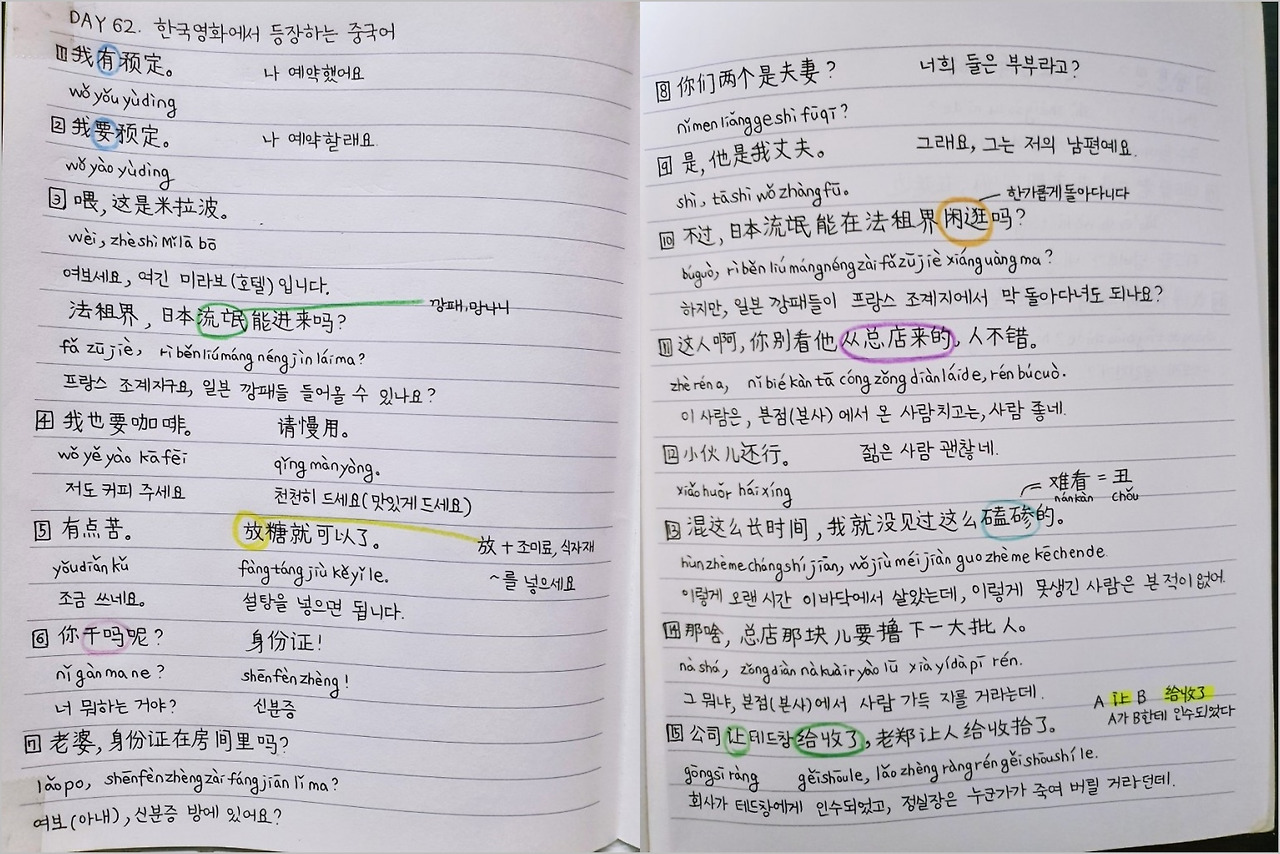 DAY 62. 한국영화에서 등장하는 중국어
1 我有预定。 나 예약했어요
wǒ yǒu yùdìng
2 我要预定。 나 예약할래요
wǒ yào yùdìng
3 喂,这是米拉波。
wèi, zhèshì Mǐlā bō
여보세요, 여긴 미라보(호텔)입니다.
깡패,망나니
法租界, 日本流氓能进来吗?
fǎ zūjiè, rìběnliúmáng néngjìnláima?
프랑스 조계지구요, 일본 깡패들 들어올 수 있나요?
4 我也要咖啡。 请慢用。
wǒ yě yào kāfēi qǐngmànyòng。
저도 커피 주세요 천천히 드세요(맛있게드세요)
5 有点苦。 放糖就可以了。
放 + 조미료, 식자재
yǒudiǎnkǔ fàngtángjiùkěyǐle.
~를 넣으세요
조금 쓰네요。 설탕을 넣으면 됩니다.
6 你干吗呢? 身份证!
nǐ gànma ne? shēnfènzhèng!
너 뭐하는 거야? 신분증
7 老婆,身份证在房间里吗?
lǎopo, shēnfènzhèngzàifángjiānlǐma?
여보(아내), 신분증 방에 있어요?
8 你们两个是夫妻? 너희 둘은 부부라고?
nǐmenliǎnggeshì fūqī?
9 是,他是我丈夫。 그래요, 그는 저의 남편예요.
shì, tāshì wǒzhàngfū。
한가롭게돌아다니다
10 不过,日本流氓能在法租界闲逛吗?
búguò, rìběnliúmángnéngzàifǎzūjiè xiánguàngma?
하지만, 일본 깡패들이 프랑스 조계지에서 막 돌아다녀도 되나요?
11 这人啊,你别看他从总店来的,人不错。
zhèréna, nǐbiékàntācóngzǒngdiànláide, rénbúcuò.
이 사람은, 본점(본사)에서 온 사람치고는, 사람 좋네.
12 小伙儿还行。 젊은 사람 괜찮네.
xiǎohuǒr háixíng
难看 = 丑
nánkàn chǒu
13 混这么长时间,我就没见过这么磕碜的。
hùnzhèmechángshíjiān, wǒjiùméijiànguozhèmekēchende.
이렇게 오랜 시간 이바닥에서 살았는데, 이렇게 못생긴 사람은 본적이없어.
14 那啥,总店那块儿要撸下一大批人。
nàshá, zǒngdiànnàkuàiryàolū xiàyídàpī rén.
그 뭐냐, 본점(본사)에서 사람 가득 자를 거라는데.
A 让 B 给收了
A가 B한테 인수되었다
15 公司让테드창给收了,老郑让人给收拾了。
gōngsīràng gěishōule, lǎozhèngràngréngěishōushíle.
회사가 테드창에게 인수되었고, 정실장은 누군가가 죽여 버릴 거라던데.